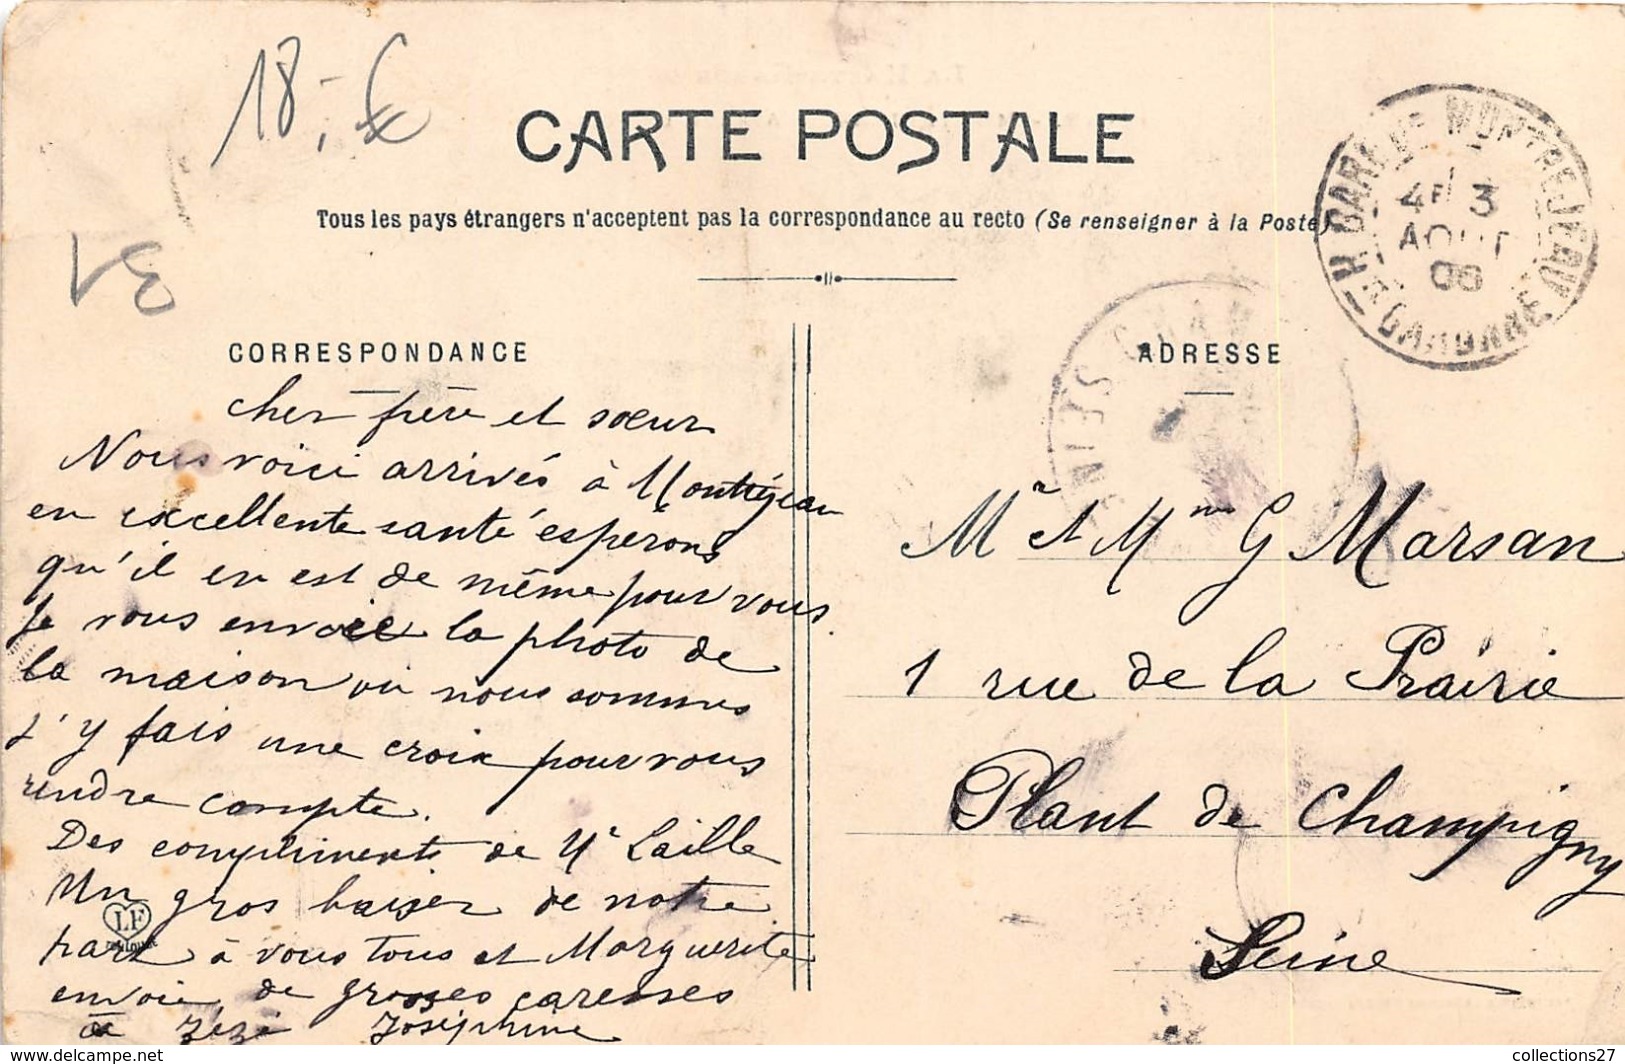 18,- €
VE
CARTE POSTALE
Tous les pays étrangers n'acceptent pas la correspondance au recto (Se renseigner à la Poste)
MONTREJEAU
4E 3
AOUT
08
Hte GARONNE
CORRESPONDANCE
ADRESSE
cher frère et sœur
Nous voici arrivés à Montréjeau
en excellente santé espérons
qu'il en est de même pour vous.
Je vous envoie la photo de
la maison où nous sommes
j'y fais une croix pour vous
rendre compte.
Des compliments de Mr Laille
Un gros baiser de notre
part à vous tous et Marguerite
envoie de grosses caresses
à Zézé Joséphine
LF
TOULOUSE
Mr et Mme G Marsan
1 rue de la Prairie
Plant de Champigny
Seine
collections27